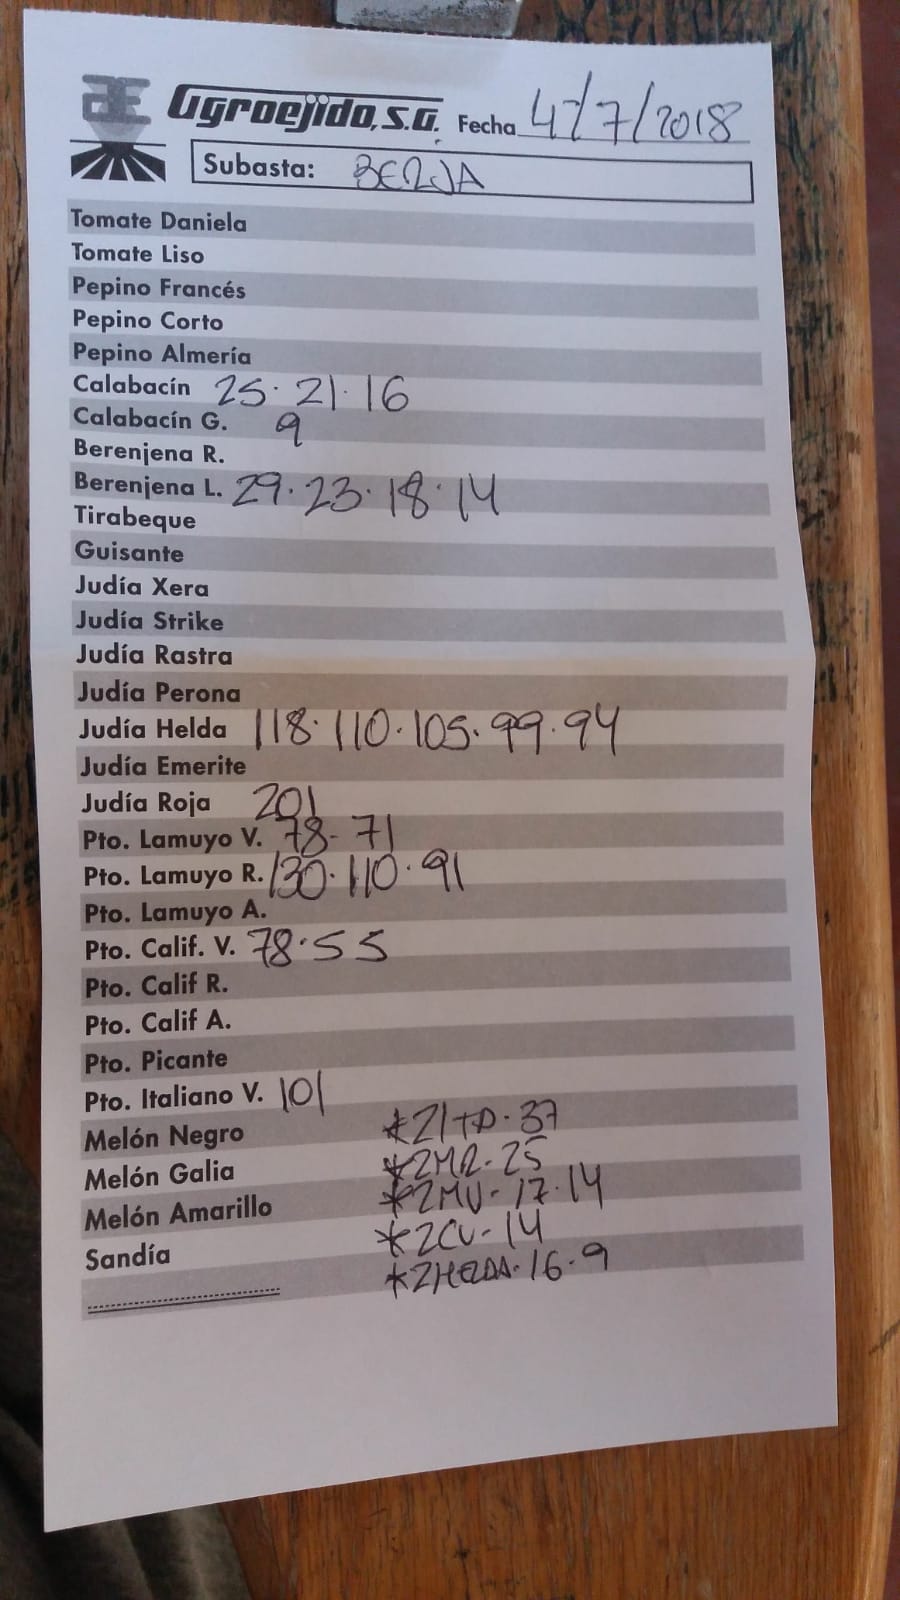 Agroejido, S.A. Fecha 4/7/2018
Subasta: BERJA
Tomate Daniela
Tomate Liso
Pepino Francés
Pepino Corto
Pepino Almería
Calabacín 25·21·16
Calabacín G. 9
Berenjena R.
Berenjena L. 29·23·18·14
Tirabeque
Guisante
Judía Xera
Judía Strike
Judía Rastra
Judía Perona
Judía Helda 118·110·105·99·94
Judía Emerite
Judía Roja 201
Pto. Lamuyo V. 78-71
Pto. Lamuyo R. 130·110·91
Pto. Lamuyo A.
Pto. Calif. V. 78·55
Pto. Calif R.
Pto. Calif A.
Pto. Picante
Pto. Italiano V. 101
Melón Negro *2ITA·37
Melón Galia *2MR-25
Melón Amarillo *2MV-17·14
Sandía *2CV-14
*2HELDA·16·9